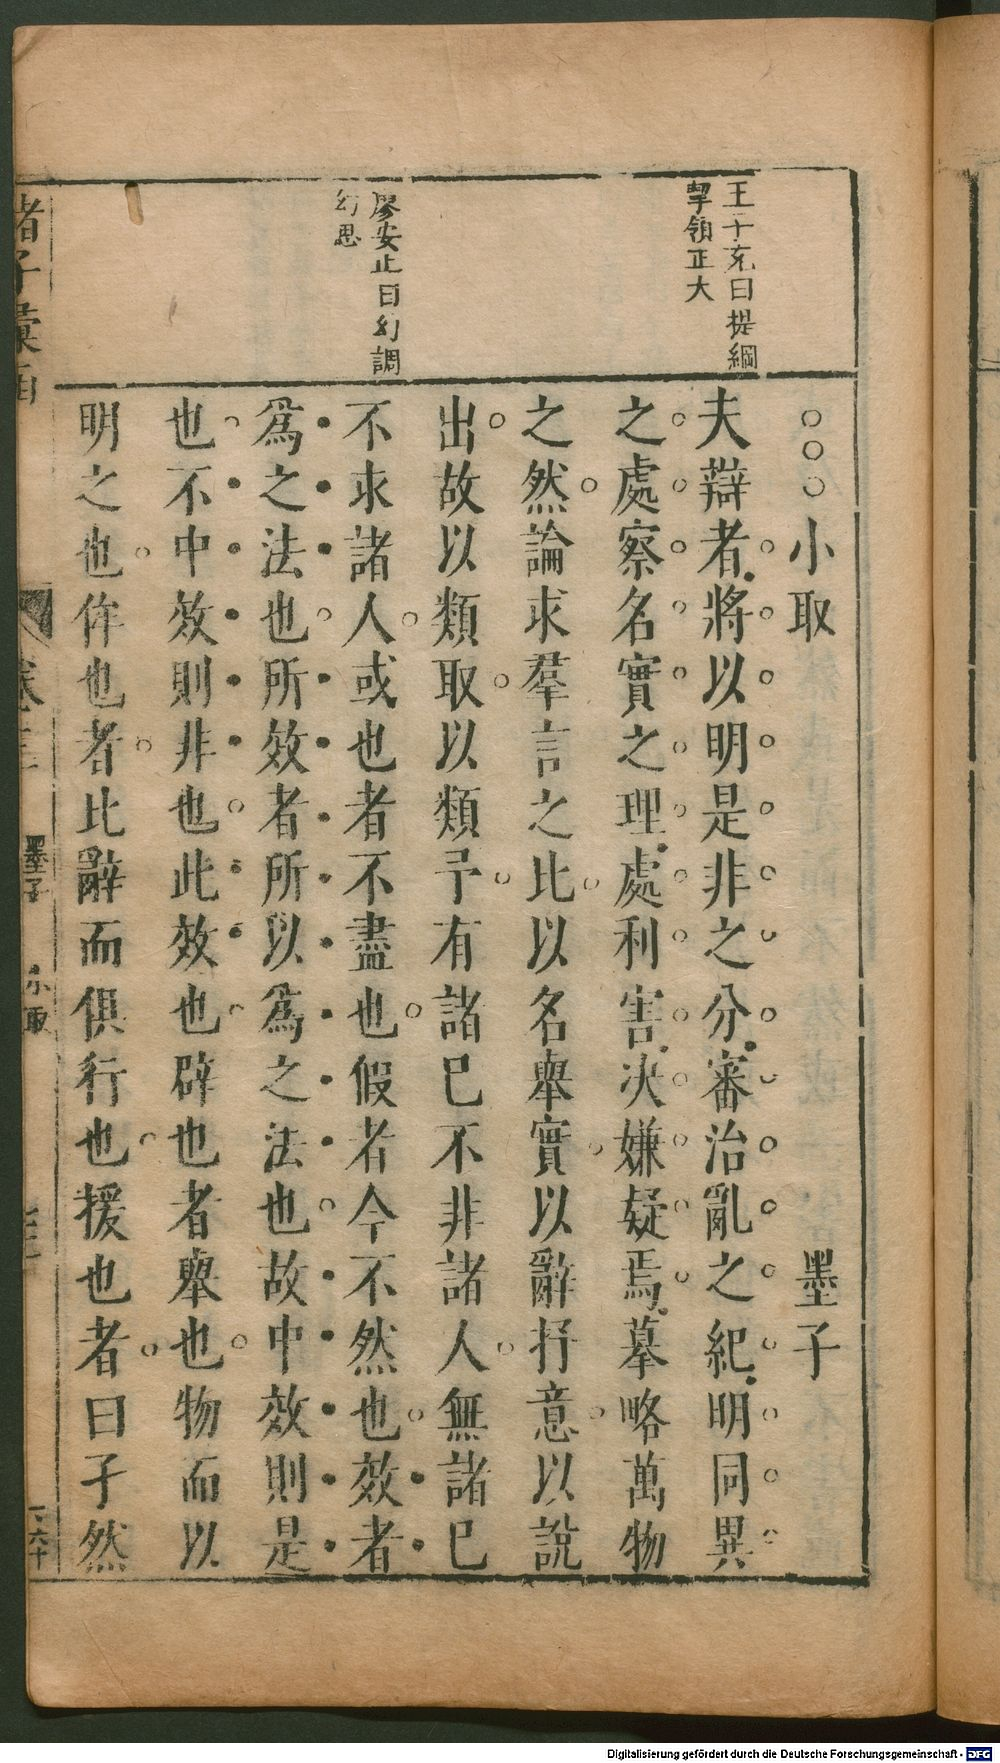 王十充曰提綱
挈領正大
廖安止曰幻調
幻思
小取 墨子
夫辯者將以明是非之分審治亂之紀明同異
之處察名實之理處利害決嫌疑焉摹略萬物
之然論求羣言之比以名舉實以辭抒意以說
出故以類取以類予有諸已不非諸人無諸已
不求諸人或也者不盡也假者今不然也效者
爲之法也所效者所以爲之法也故中效則是
也不中效則非也此效也辟也者舉也物而以
明之也侔也者比辭而俱行也援也者曰子然
諸子彙函
墨子 小取
Digitalisierung gefördert durch die Deutsche Forschungsgemeinschaft - DFG